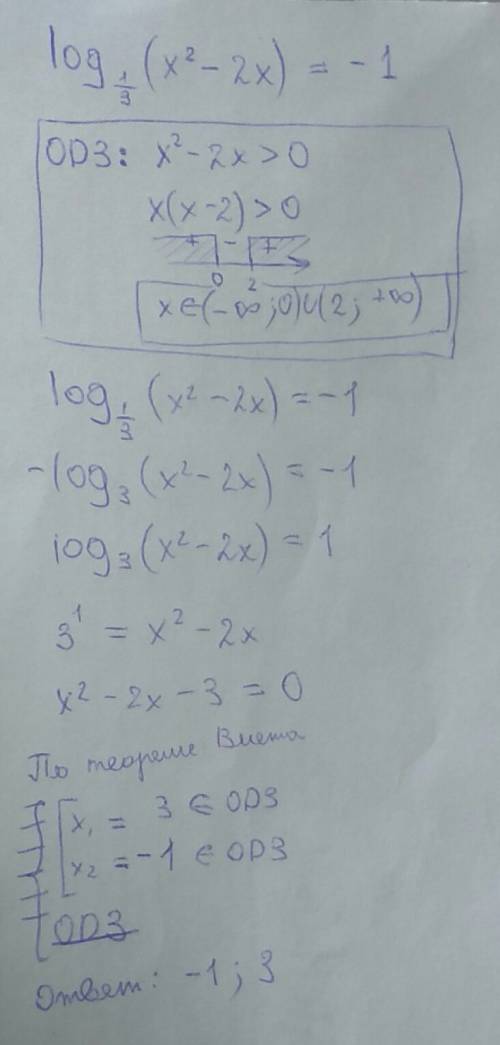 log₁⁄₃ (x² - 2x) = -1
ОДЗ: x² - 2x > 0
x(x-2) > 0
+ - +
0 2
x ∈ (-∞; 0) ∪ (2; +∞)
log₁⁄₃ (x² - 2x) = -1
-log₃ (x² - 2x) = -1
log₃ (x² - 2x) = 1
3¹ = x² - 2x
x² - 2x - 3 = 0
По теореме Виета
x₁ = 3 ∈ ОДЗ
x₂ = -1 ∈ ОДЗ
ОДЗ
Ответ: -1; 3